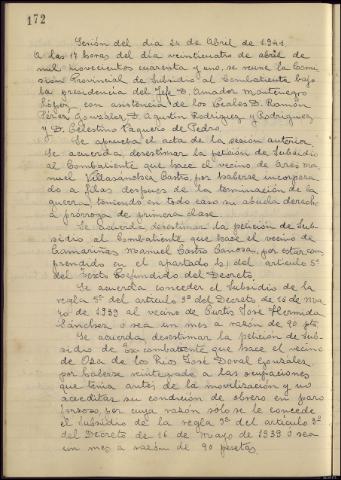 172
Sesión del dia 24 de Abril de 1941
A las 17 horas del día veinticuatro de abril de
mil novecientos cuarenta y uno, se reune la Comi
sión Provincial de Subsidio al Combatiente bajo
la presidencia del Jefe D. Amador Montenegro
López, con asistencia de los Vocales D. Ramón
Pérez González, D. Agustín Rodriguez y Rodriguez
y D. Celestino Vaquero de Pedro.
Se aprueba el acta de la sesión anterior.
Se acuerda desestimar la petición de Subsidio
al Combatiente que hace el vecino de Ares Ma
nuel Castro, por haberse incorpora
do a filas despues de la terminación de la
guerra, teniendo en todo caso su abuela derecho
a prórroga de primera clase.
Se acuerda desestimar la petición de Sub
sidio al Combatiente que hace el vecino de
Camariñas Manuel Castro Canosa, por estar com
prendido en el apartado b) del artículo 5º
del Texto Refundido del Decreto.
Se acuerda conceder el Subsidio de la
regla 9ª del artículo 3º del Decreto de 16 de Ma
yo de 1939 al vecino de Curtis José Hermida
Sánchez o sea un mes a razón de 90 pts.
Se acuerda desestimar la petición de Sub
sidio de Ex-combatiente que hace el vecino
de Oza de los Rios José Doval González
por haberse reintegrado a las ocupaciones
que tenia antes de la movilización y no
acreditar su condición de obrero en paro
forzoso, por cuya razón sólo se le concede
el subsidio de la regla 9ª del artículo 3º
del Decreto de 16 de Mayo de 1939 o sea
un mes a razón de 90 pesetas